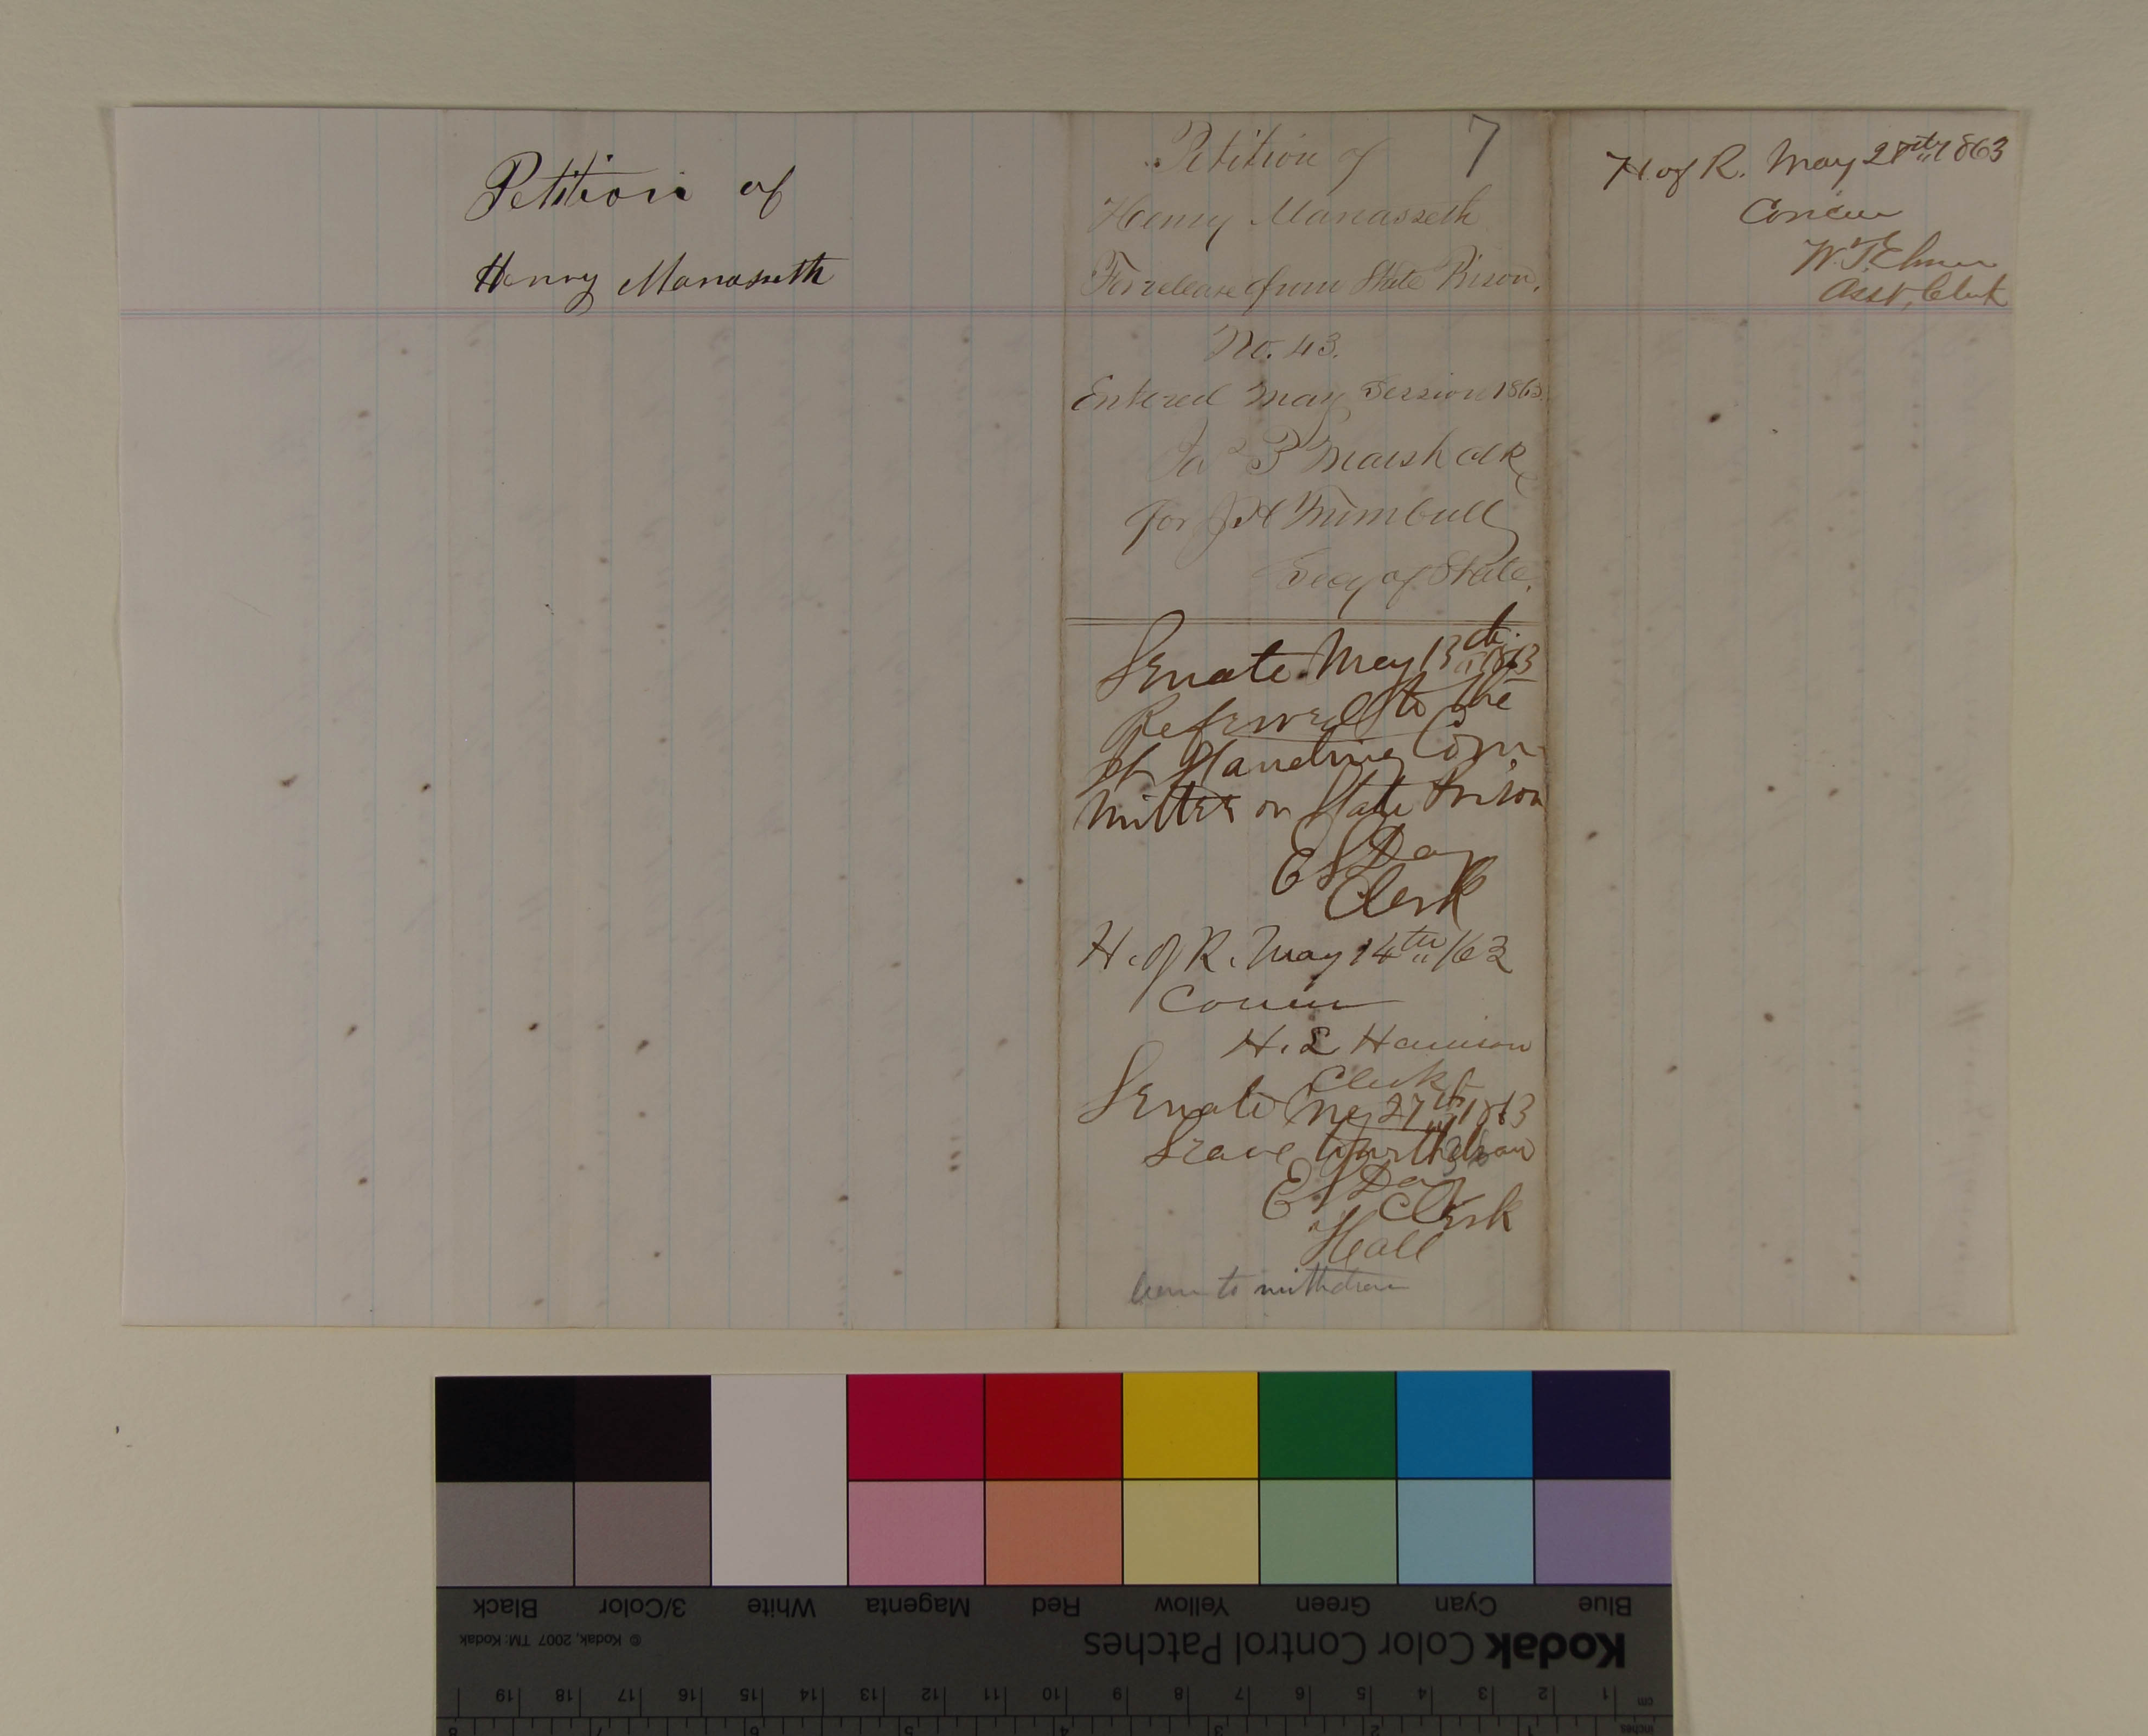 Petition of
Henry Manasseth
7
Petition of
Henry Manasseth
For release from State Prison.
No. 43.
Entered May Session 1863.
Jas P Marsh clk
for J H Trumbull
Secy of State.
Senate May 13th 1863
Referred to the
Jt Standing Com-
mittee on State Prison
E S Day
Clerk
H. of R. May 14th /63
Concur
H. L Harrison
Clerk
Senate May 27th 1863
Leave to withdraw
E S Day
Clerk
Hall
leave to withdraw
H. of R. May 28th 1863
Concur
W. T. Elmer
Asst. Clerk
Black 3/Color White Magenta Red Yellow Green Cyan Blue
© Kodak, 2007 TM: Kodak
Kodak Color Control Patches
cm 1 2 3 4 5 6 7 8 9 10 11 12 13 14 15 16 17 18 19
inches 1 2 3 4 5 6 7 8